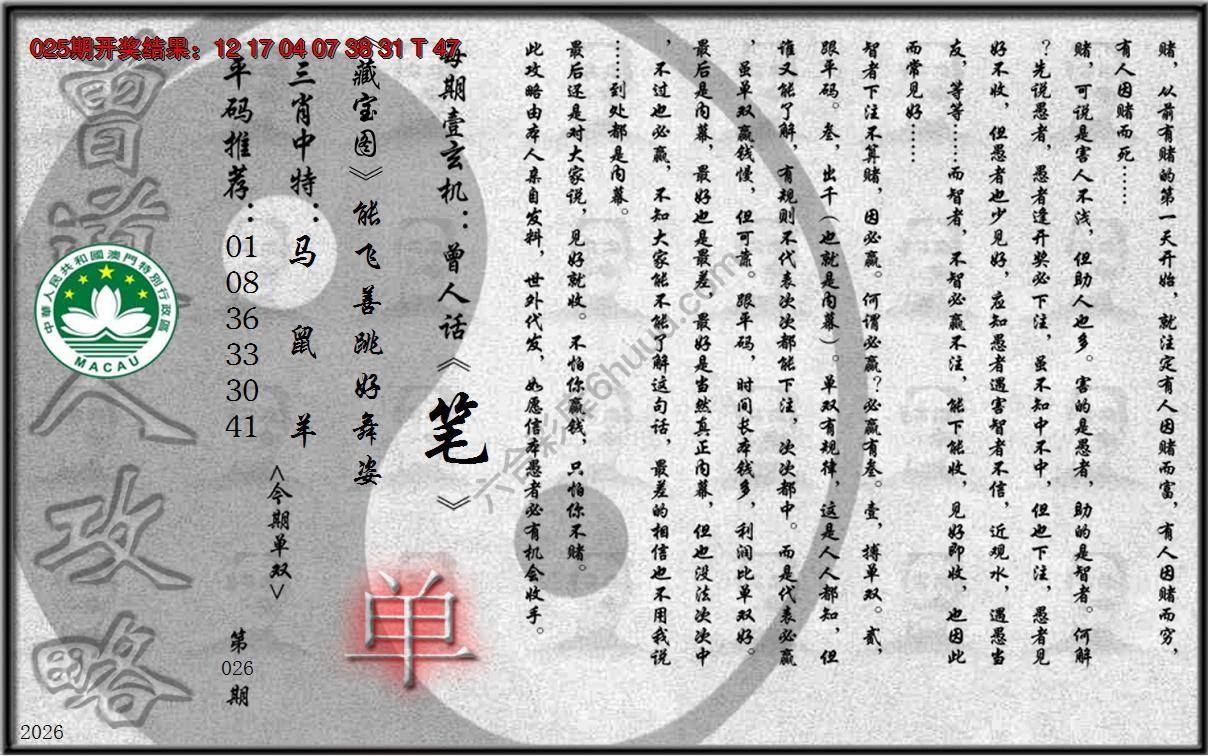 025期开奖结果：12 17 04 07 38 31 T 47
赌，从前有赌的第一天开始，就注定有人因赌而富，有人因赌而穷，
有人因赌而死……
赌，可说是害人不浅，但助人也多。害的是愚者，助的是智者。何解
？先说愚者，愚者逢开奖必下注，虽不知中不中，但也下注，愚者见
好不收，但愚者也少见好，应知愚者遇害智者不信，近观水，遇愚当
友，等等……而智者，不智必赢不注，能下能收，见好即收，也因此
而常见好……
智者下注不算赌，因必赢。何谓必赢？必赢有叁。壹，搏单双。贰，
跟平码。叁，出千（也就是内幕）。单双有规律，这是人人都知，但
谁又能了解，有规则不代表次次都能下注，次次都中。而是代表必赢
，虽单双赢钱慢，但可靠。跟平码，时间长本钱多，利润比单双好。
最后是内幕，最好也是最差，最好是当然真正内幕，但也没法次次中
，不过也必赢，不知大家能不能了解这句话，最差的相信也不用我说
……到处都是内幕。
最后还是对大家说，见好就收。不怕你赢钱，只怕你不赌。
此攻略由本人亲自发料，世外代发，如愿信本愚者必有机会收手。
每期壹玄机：曾人话《笔》
《藏宝图》能飞善跳好舞姿
三肖中特：马 鼠 羊
平码推荐：01 08 36 33 30 41
<今期单双>
单
第
026
期
曾道人攻略
中華人民共和國澳門特別行政區
MACAU
2026